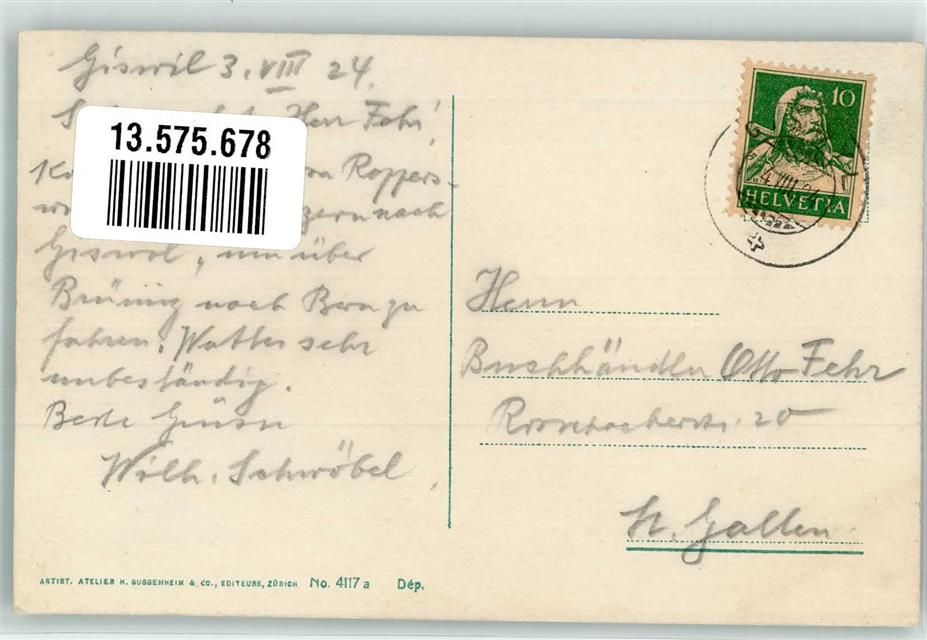 Giswil 3. VIII 24.
Herr Fehr,
13.575.678
Roppers-
nach
Giswol, um über
Brünig nach Bern zu
fahren. Wetter sehr
unbeständig.
Beste Grüsse
Wilh. Schwöbel,
10
HELVETIA
Herrn
Buchhändler Otto Fehr
Rorschacherstr. 20
St. Gallen
ARTIST. ATELIER H. GUGGENHEIM & CO., EDITEURS, ZÜRICH No. 4117a Dép.